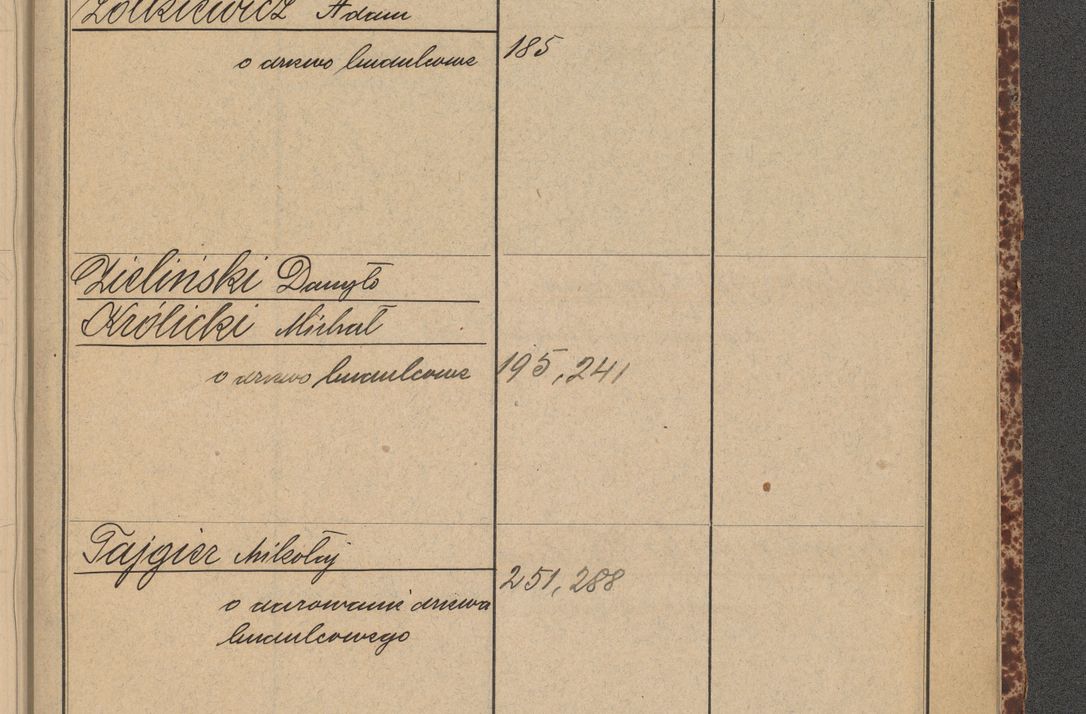 Żółkiewicz Adam
o drzewo budulcowe 185
Zieliński Danyło
Królicki Michał
o drzewo budulcowe 195, 241
Tajgier Mikołaj
251, 288
o darowanie drzewa
budulcowego